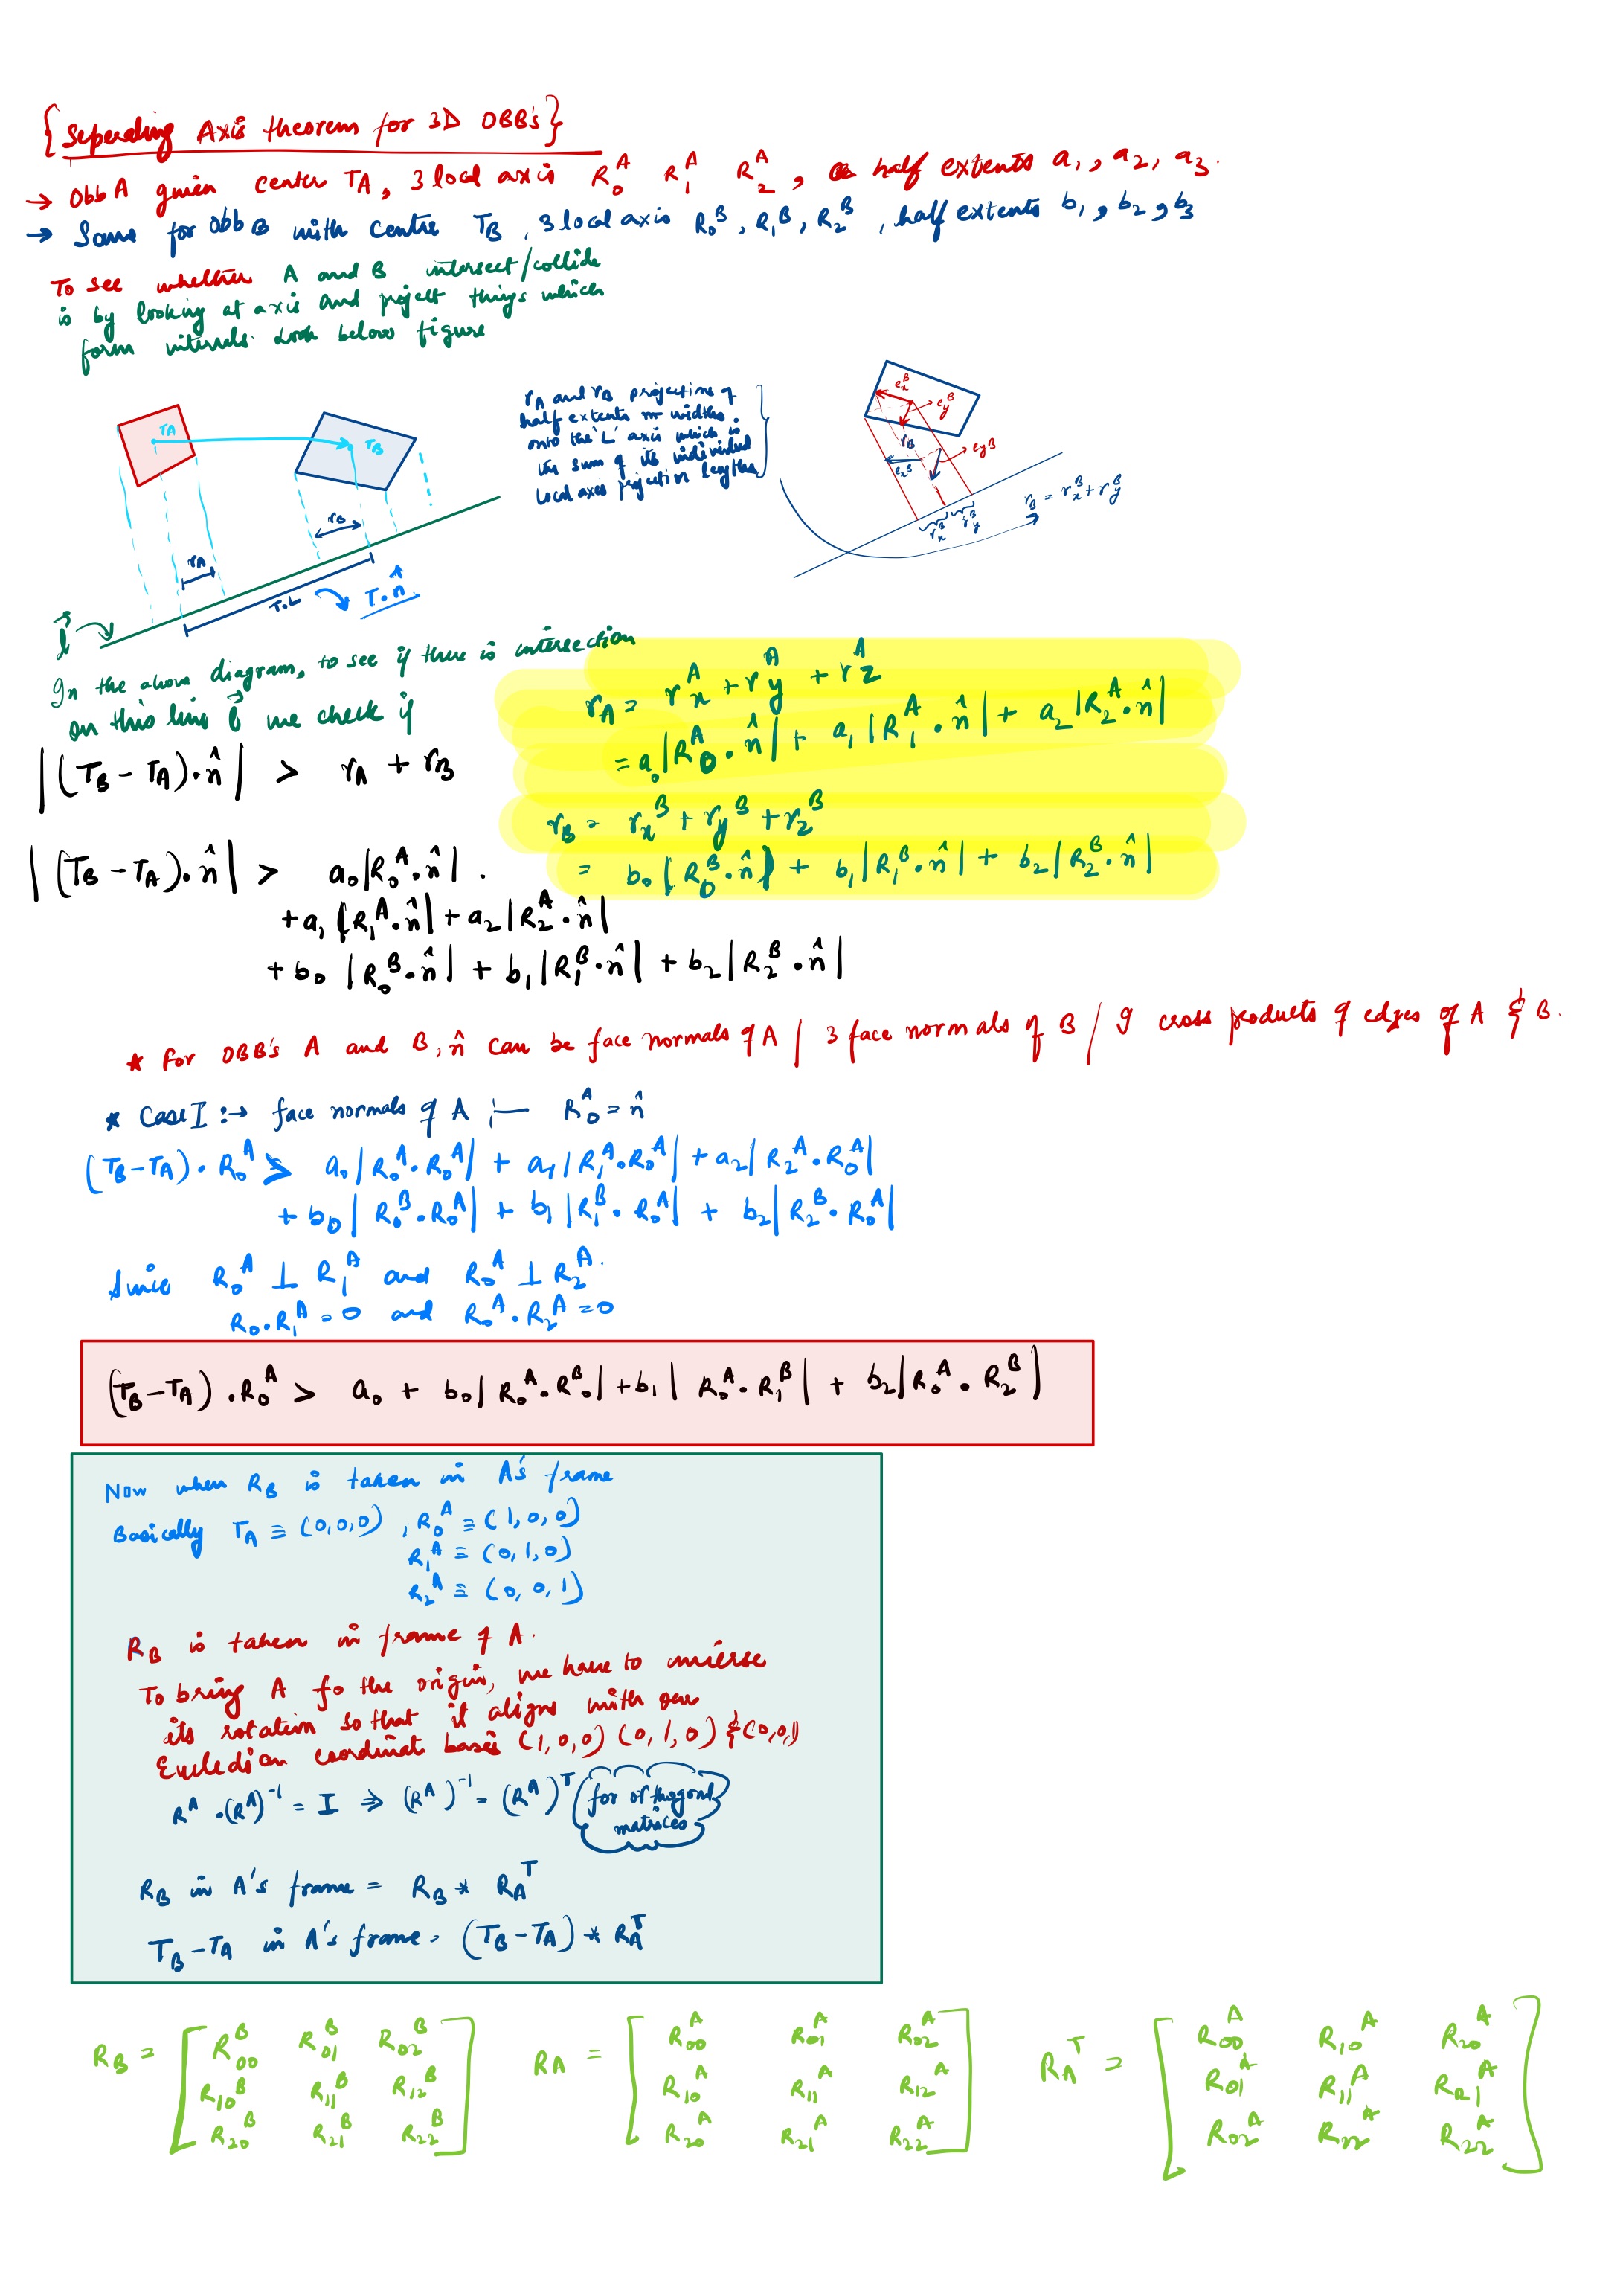 {Seperading Axis theorem for 3D OBB's}
→ Obb A given center TA, 3 local axis R₀ᴬ R₁ᴬ R₂ᴬ, half extents a₁, a₂, a₃.
→ Same for Obb B with centre TB, 3 local axis R₀ᴮ, R₁ᴮ, R₂ᴮ, half extents b₁, b₂, b₃
To see whether A and B intersect/collide
is by looking at axis and project things which
form intervals. Look below figure
TA
TB
rA
rB
T.L
T.n̂
l⃗
rA and rB projections of
half extents or widths
onto the 'L' axis which is
the sum of its individual
local axis projection lengths
eₓᴮ
e_yᴮ
rB
eₓᴮ
e_yB
rₓᴮ
r_yᴮ
rB = rₓᴮ + r_yᴮ
In the above diagram, to see if there is intersection
on this line l⃗ we check if
|(TB - TA).n̂| > rA + rB
|(TB - TA).n̂| > a₀|R₀ᴬ.n̂|.
+ a₁|R₁ᴬ.n̂| + a₂|R₂ᴬ.n̂|
+ b₀|R₀ᴮ.n̂| + b₁|R₁ᴮ.n̂| + b₂|R₂ᴮ.n̂|
rA = rₓᴬ + r_yᴬ + r_zᴬ
= a₀|R₀ᴬ.n̂| + a₁|R₁ᴬ.n̂| + a₂|R₂ᴬ.n̂|
rB = rₓᴮ + r_yᴮ + r_zᴮ
= b₀|R₀ᴮ.n̂| + b₁|R₁ᴮ.n̂| + b₂|R₂ᴮ.n̂|
* For OBB's A and B, n̂ can be face normals of A / 3 face normals of B / 9 cross products of edges of A & B.
* Case I :→ face normals of A :— R₀ᴬ = n̂
(TB-TA).R₀ᴬ > a₀|R₀ᴬ.R₀ᴬ| + a₁|R₁ᴬ.R₀ᴬ| + a₂|R₂ᴬ.R₀ᴬ|
+ b₀|R₀ᴮ.R₀ᴬ| + b₁|R₁ᴮ.R₀ᴬ| + b₂|R₂ᴮ.R₀ᴬ|
Since R₀ᴬ ⊥ R₁ᴬ and R₀ᴬ ⊥ R₂ᴬ.
R₀.R₁ᴬ = 0 and R₀ᴬ.R₂ᴬ = 0
(TB-TA).R₀ᴬ > a₀ + b₀|R₀ᴬ.Rᴮ₀| + b₁|R₀ᴬ.R₁ᴮ| + b₂|R₀ᴬ.R₂ᴮ|
Now when RB is taken in A's frame
Basically TA ≡ (0,0,0), R₀ᴬ ≡ (1,0,0)
R₁ᴬ ≡ (0,1,0)
R₂ᴬ ≡ (0,0,1)
RB is taken in frame of A.
To bring A to the origin, we have to inverse
its rotation so that it aligns with our
Eucledian coordinate basis (1,0,0) (0,1,0) & (0,0,1)
Rᴬ.(Rᴬ)⁻¹ = I ⇒ (Rᴬ)⁻¹ = (Rᴬ)ᵀ (for orthogonal
matrices
RB in A's frame = RB * RAᵀ
TB-TA in A's frame = (TB-TA) * RAᵀ
RB = [R₀₀ᴮ R₀₁ᴮ R₀₂ᴮ RA = [R₀₀ᴬ R₀₁ᴬ R₀₂ᴬ RAᵀ = [R₀₀ᴬ R₁₀ᴬ R₂₀ᴬ
R₁₀ᴮ R₁₁ᴮ R₁₂ᴮ R₁₀ᴬ R₁₁ᴬ R₁₂ᴬ R₀₁ᴬ R₁₁ᴬ R₂₁ᴬ
R₂₀ᴮ R₂₁ᴮ R₂₂ᴮ] R₂₀ᴬ R₂₁ᴬ R₂₂ᴬ] R₀₂ᴬ R₂₂ᴬ R₂₂ᴬ]